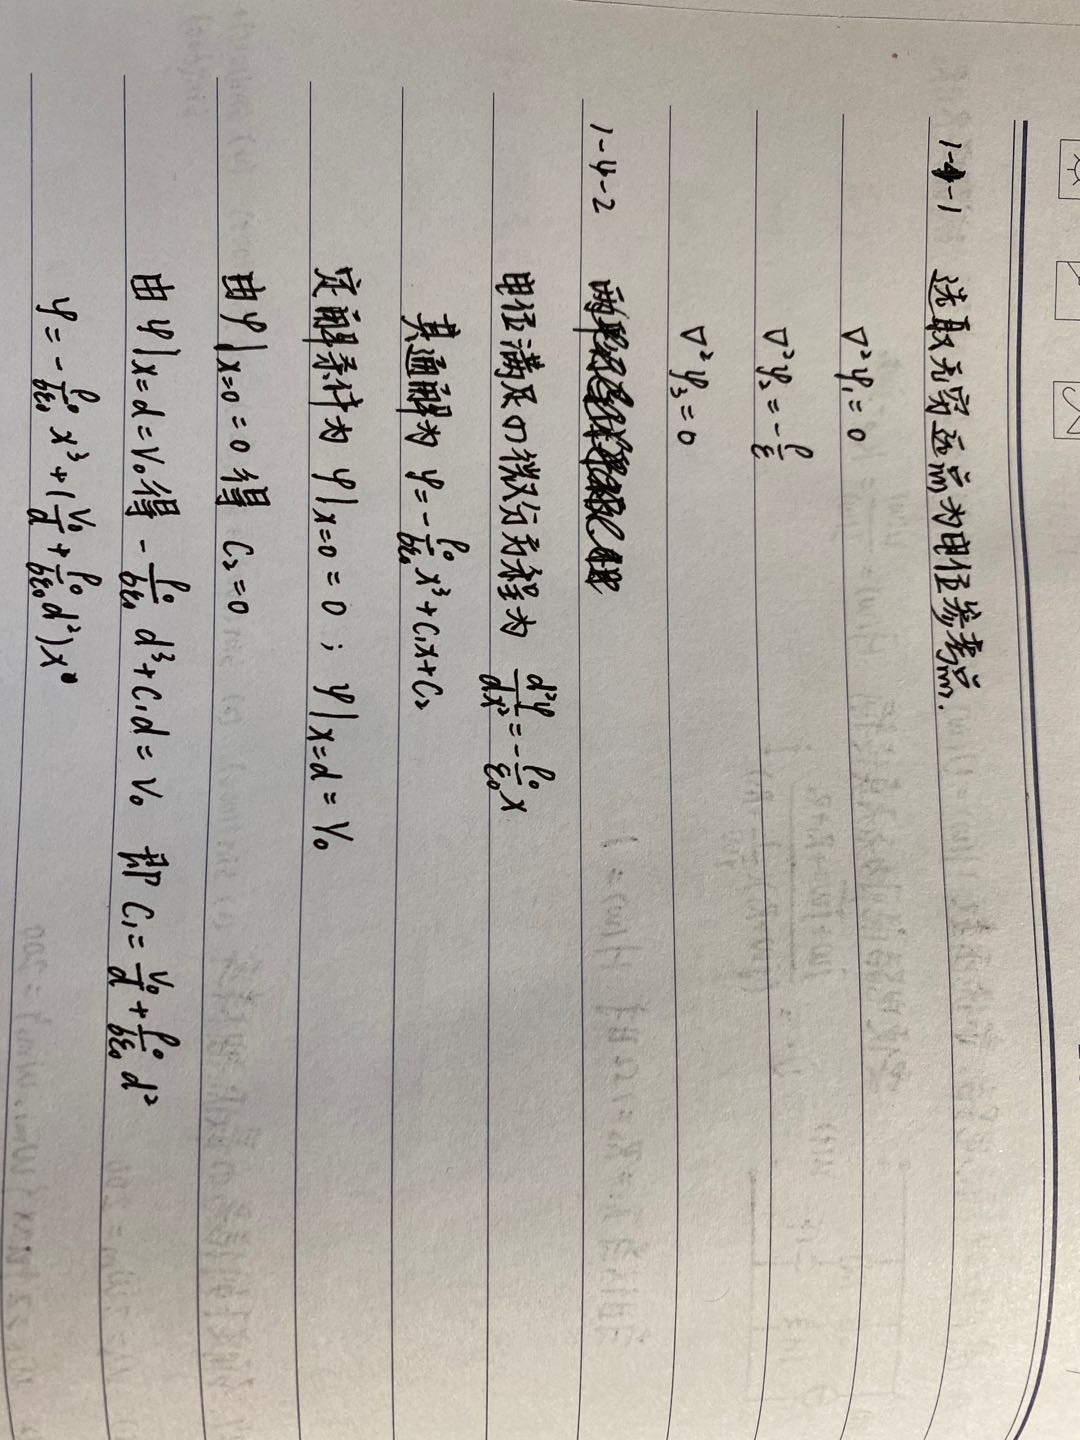 1-4-1 选取无穷远点为电位参考点.
∇²φ₁=0
∇²φ₂=-ρ/ε
∇²φ₃=0
1-4-2
电位满足的微分方程为 d²φ/dx²=-ρ₀/ε₀ x
其通解为 φ=-ρ₀/6ε₀ x³+C₁x+C₂
定解条件为 φ|x=0=0；φ|x=d=V₀
由φ|x=0=0得 C₂=0
由φ|x=d=V₀得 -ρ₀/6ε₀ d³+C₁d=V₀ 即 C₁=V₀/d+ρ₀/6ε₀ d²
φ=-ρ₀/6ε₀ x³+(V₀/d+ρ₀/6ε₀ d²)x